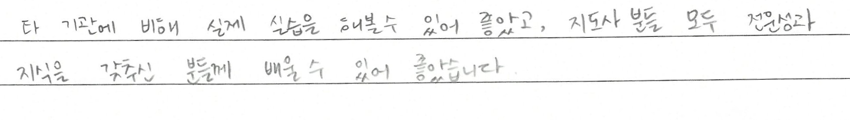 타 기관에 비해 실제 실습을 해볼 수 있어 좋았고, 지도사 분들 모두 전문성과
지식을 갖추신 분들께 배울 수 있어 좋았습니다.